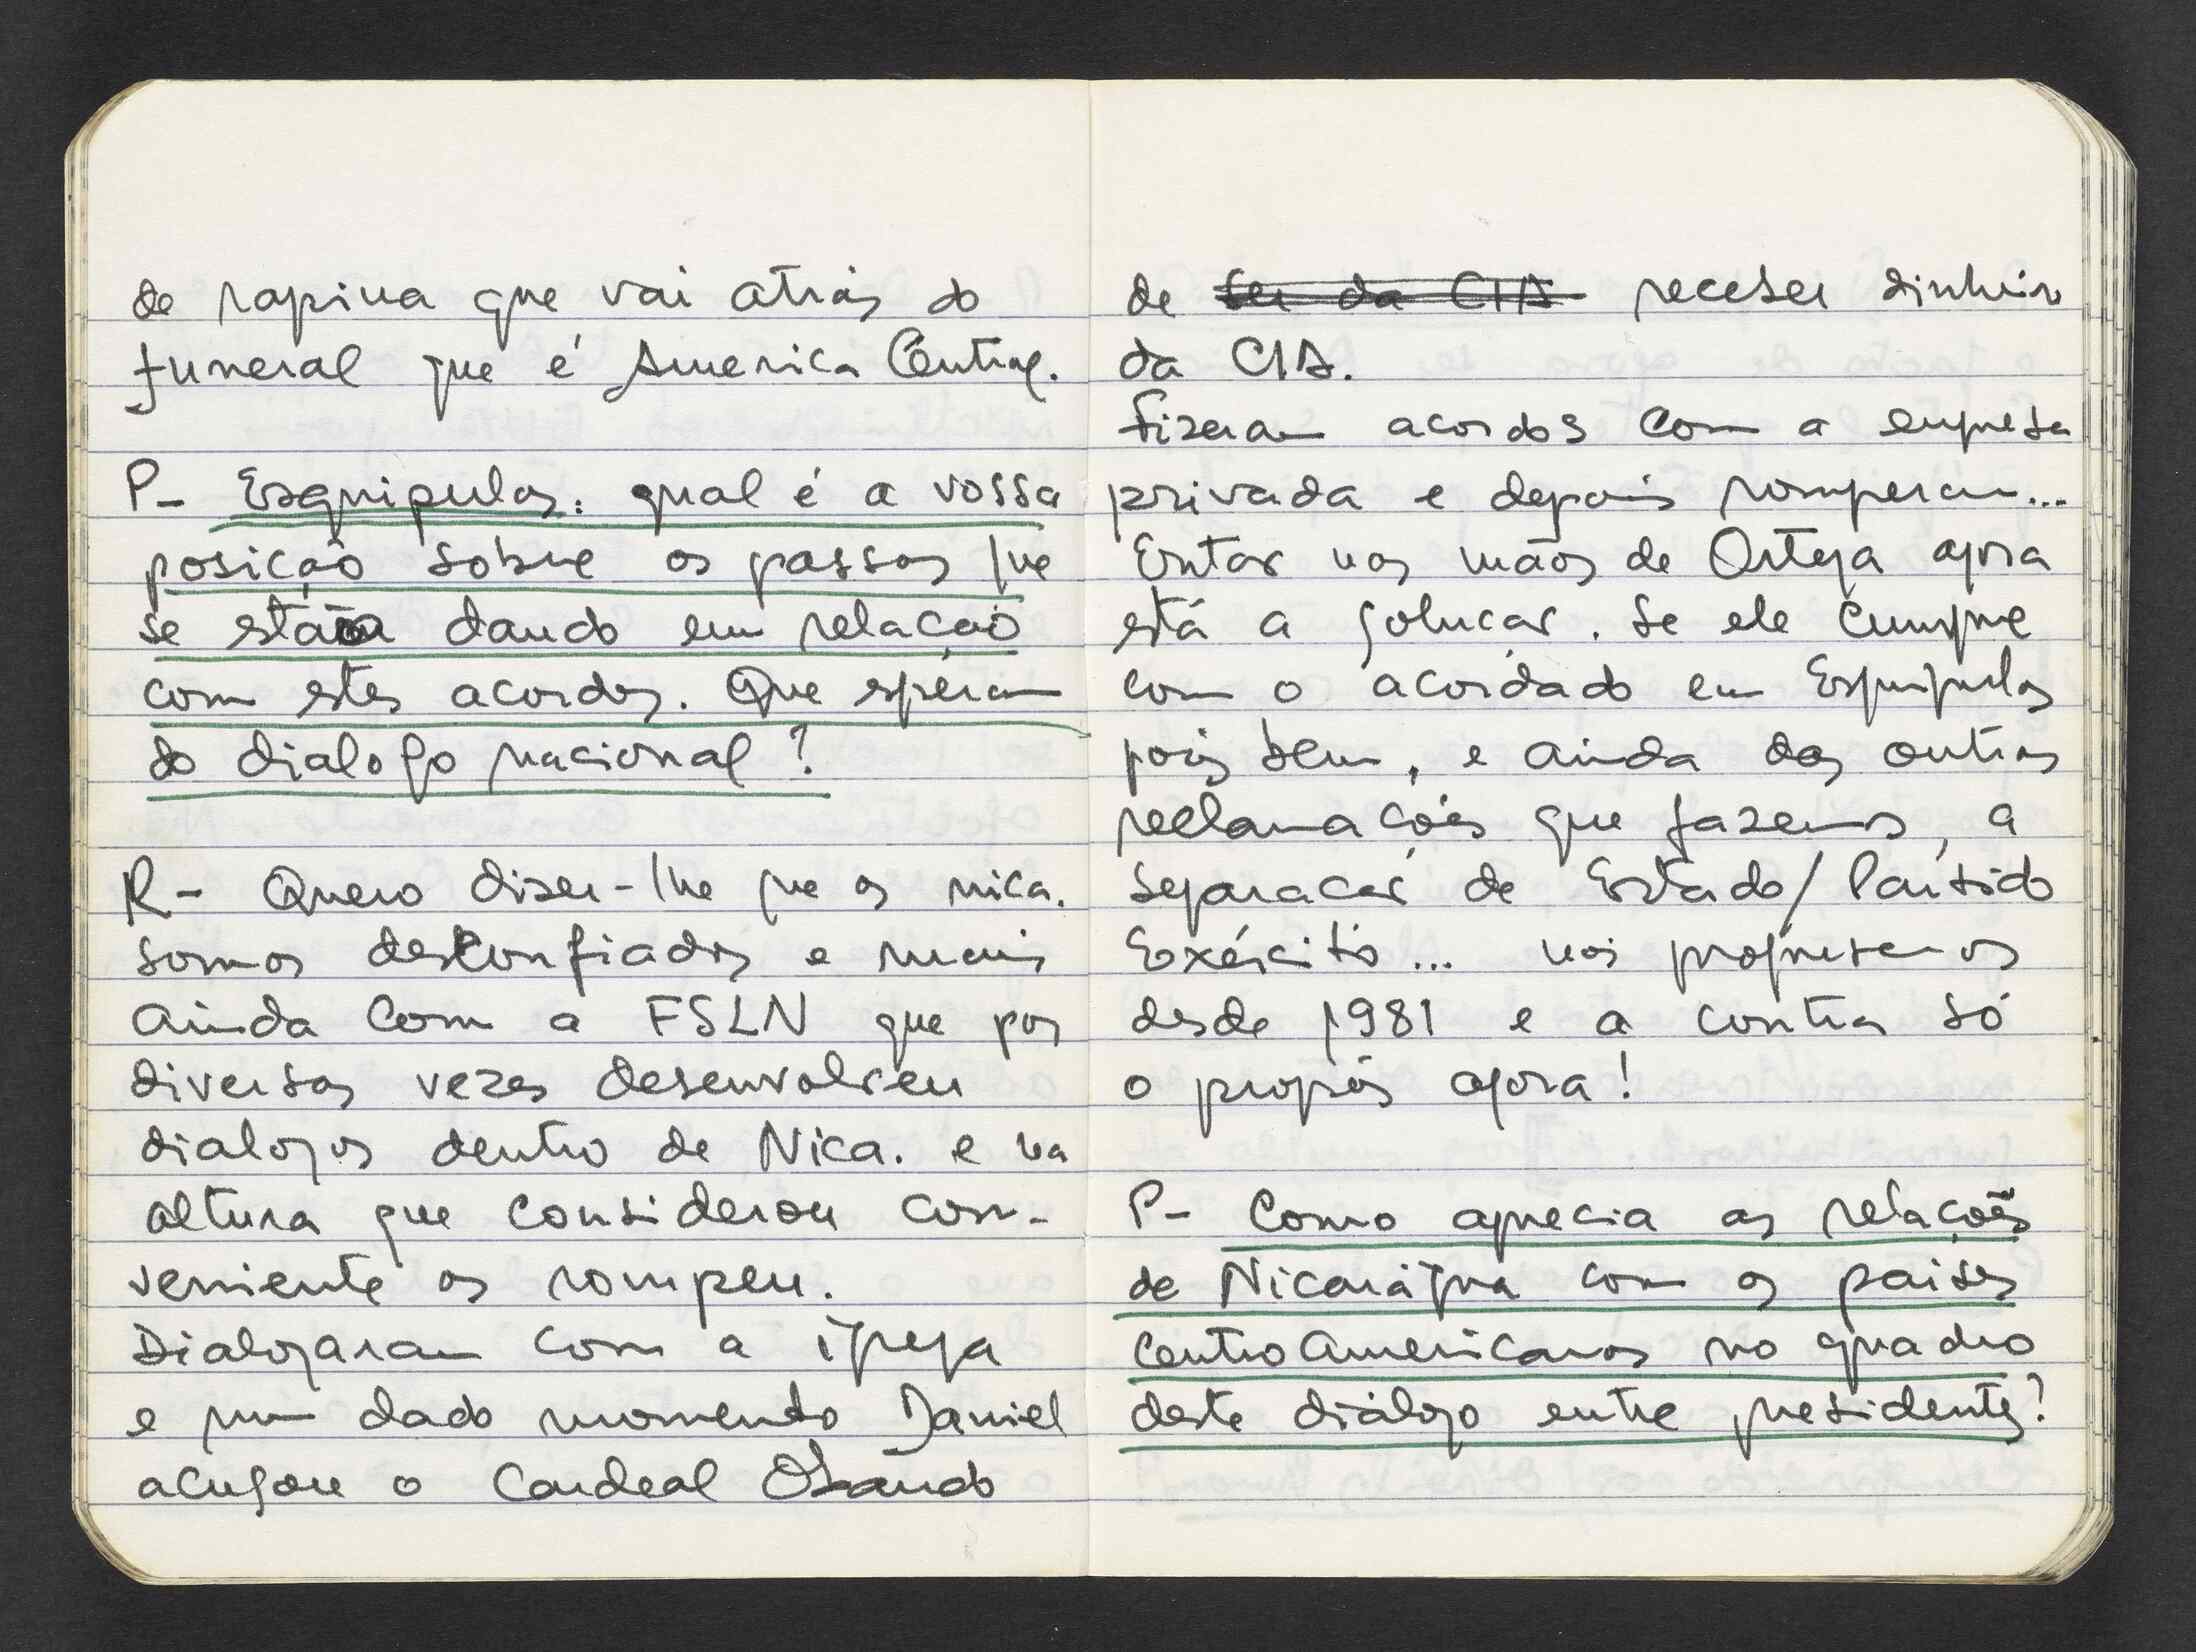 de rapina que vai atrás do
funeral que é America Central.
P- Esquipulas: qual é a vossa
posição sobre os passos que
se estão dando em relação
com estes acordos. Que esperam
do dialogo nacional?
R- Quero dizer-lhe que os nica.
somos desconfiados e mais
ainda com a FSLN que por
diversas vezes desenvolveu
dialogos dentro de Nica. e na
altura que considerou con-
veniente os rompeu.
Dialogaram com a igreja
e num dado momento Daniel
acusou o Cardeal Obando
de ser da CIA receber dinheiro
da CIA.
Fizeram acordos com a empresa
privada e depois romperam...
Entar nas mãos de Ortega agora
está a solucar. Se ele cumpre
com o acordado em Esquipulas
pois bem, e ainda das outras
reclamações que fazemos, a
separacar de Estado/Partido
Exército... nos propusemos
desde 1981 e a contra só
o propôs agora!
P- Como aprecia as relações
de Nicarágua com os paises
CentroAmericanos no quadro
deste diálogo entre presidentes?